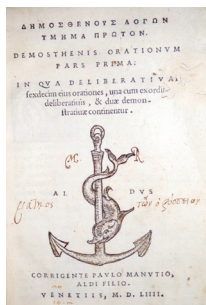 ΔΗΜΟΣΘΕΝΟΥΣ ΛΟΓΩΝ
ΤΜΗΜΑ ΠΡΩΤΟΝ.
DEMOSTHENIS ORATIONVM
PARS PRIMA:
IN QVA DELIBERATIVAE
sexdecim eius orationes, una cum exordiis
deliberatiuis, & duæ demon-
stratiuæ continentur.
AL DVS
CORRIGENTE PAVLO MANVTIO,
ALDI FILIO.
VENETIIS, M. D. LIIII.